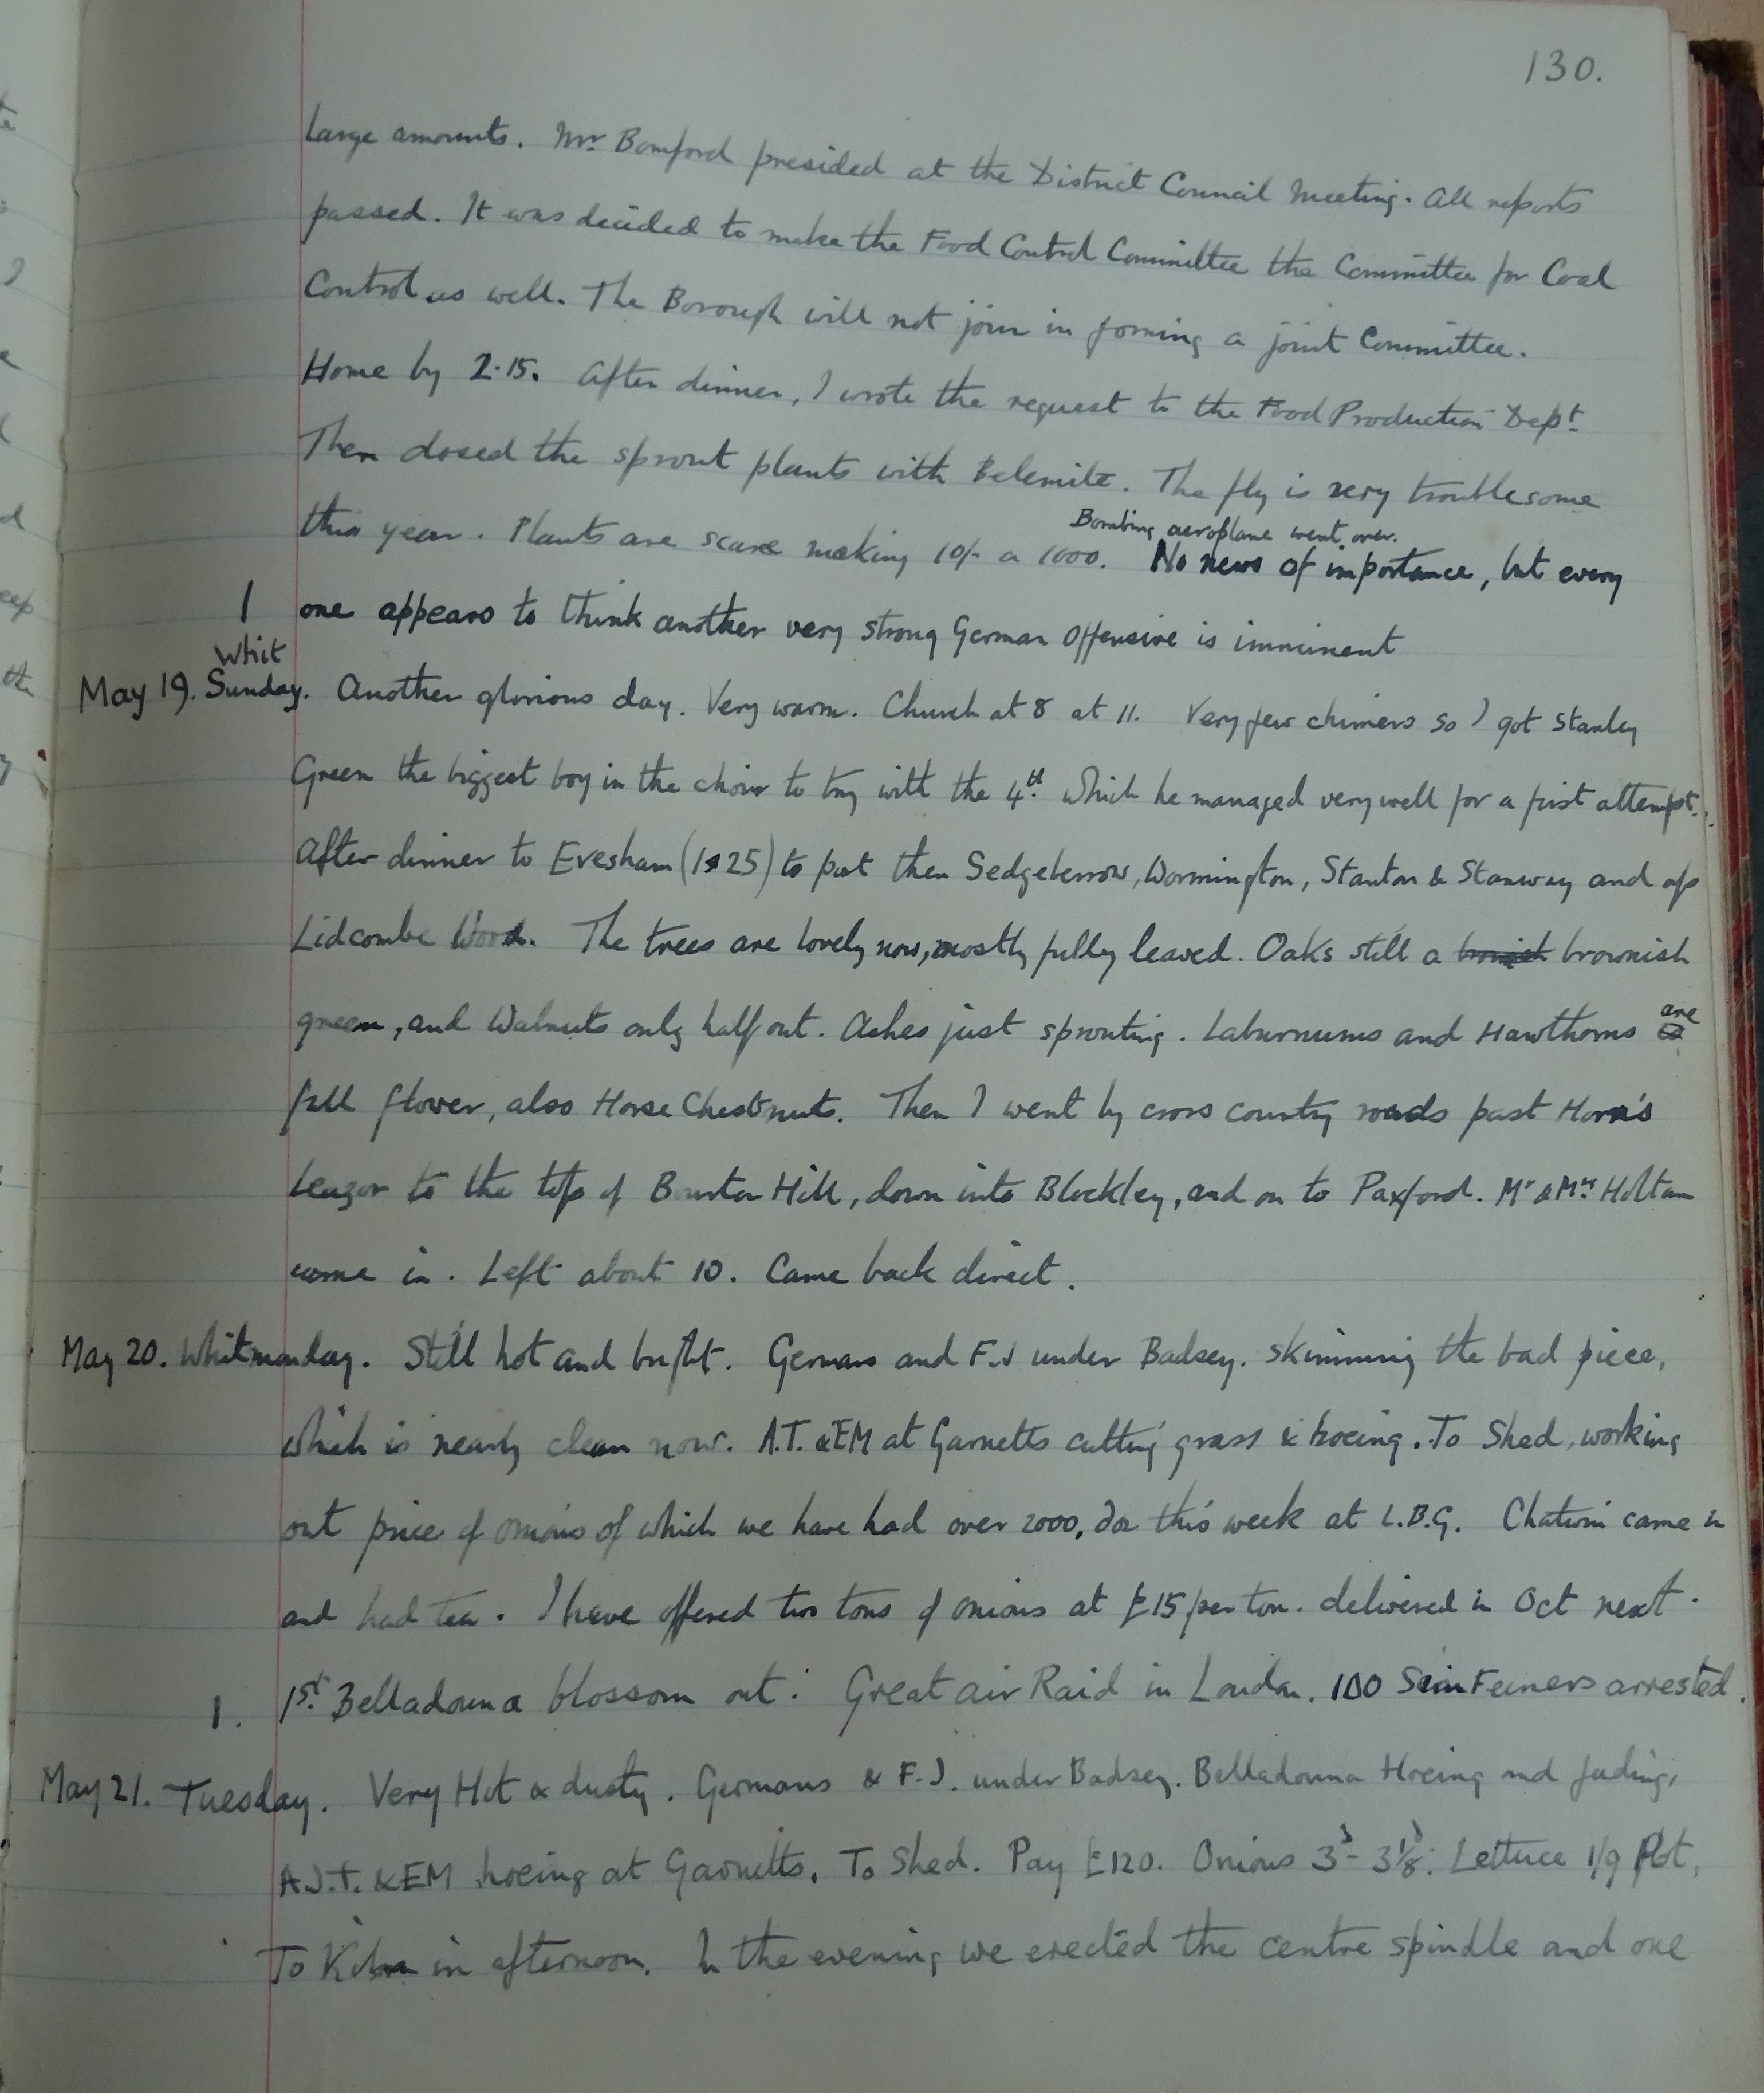 130.
large amounts. Mr Bomford presided at the District Council Meeting. All reports
passed. It was decided to make the Food Control Committee the Committee for Coal
Control as well. The Borough will not join in forming a joint Committee.
Home by 2.15. After dinner, I wrote the request to the Food Production Dept.
Then dosed the sprout plants with Belemite. The fly is very troublesome
Bombing aeroplane went over.
this year. Plants are scarce making 10/- a 1000. No news of importance, but every
1 one appears to think another very strong German Offensive is imminent
Whit
May 19. Sunday. Another glorious day. Very warm. Church at 8 at 11. Very few chimers so I got Stanley
Green the biggest boy in the choir to try with the 4th. which he managed very well for a first attempt.
After dinner to Evesham (1.25) to post then Sedgeberrow, Wormington, Stanton & Stanway and up
Lidcombe Wood. The trees are lovely now, mostly fully leaved. Oaks still a brownish
are
green, and Walnuts only half out. Ashes just sprouting. Laburnums and Hawthorns
full flower, also Horse Chestnuts. Then I went by cross country roads past Horn's
Leazor to the top of Bourton Hill, down into Blockley, and on to Paxford. Mr & Mrs Holtam
came in. Left about 10. Came back direct.
May 20. Whitmonday. Still hot and bright. Germans and F.J under Badsey. skimming the bad piece,
which is nearly clean now. A.T. & EM at Garnetts cutting grass & hoeing. To Shed, working
out price of onions of which we have had over 2000, doz this week at L.B.G. Chatwin came in
and had tea. I have offered two tons of onions at £15 per ton. delivered in Oct next.
1. 1st. Belladonna blossom out. Great air Raid in London. 100 Sinn Feiners arrested.
May 21. Tuesday. Very Hot & dusty. Germans & F.J. under Badsey. Belladonna Hoeing and
A.J.T. & EM hoeing at Garnetts. To Shed. Pay £120. Onions 3d - 3⅛d. Lettuce 1/9 Pot,
To Kiln in afternoon. In the evening we erected the centre spindle and one